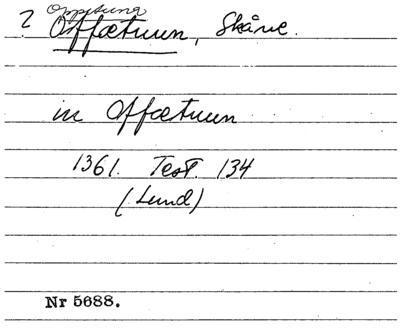 Oppituna
? Offætuun, Skåne.
in Offætuun
1361. Test. 134
(Lund)
Nr 5688.